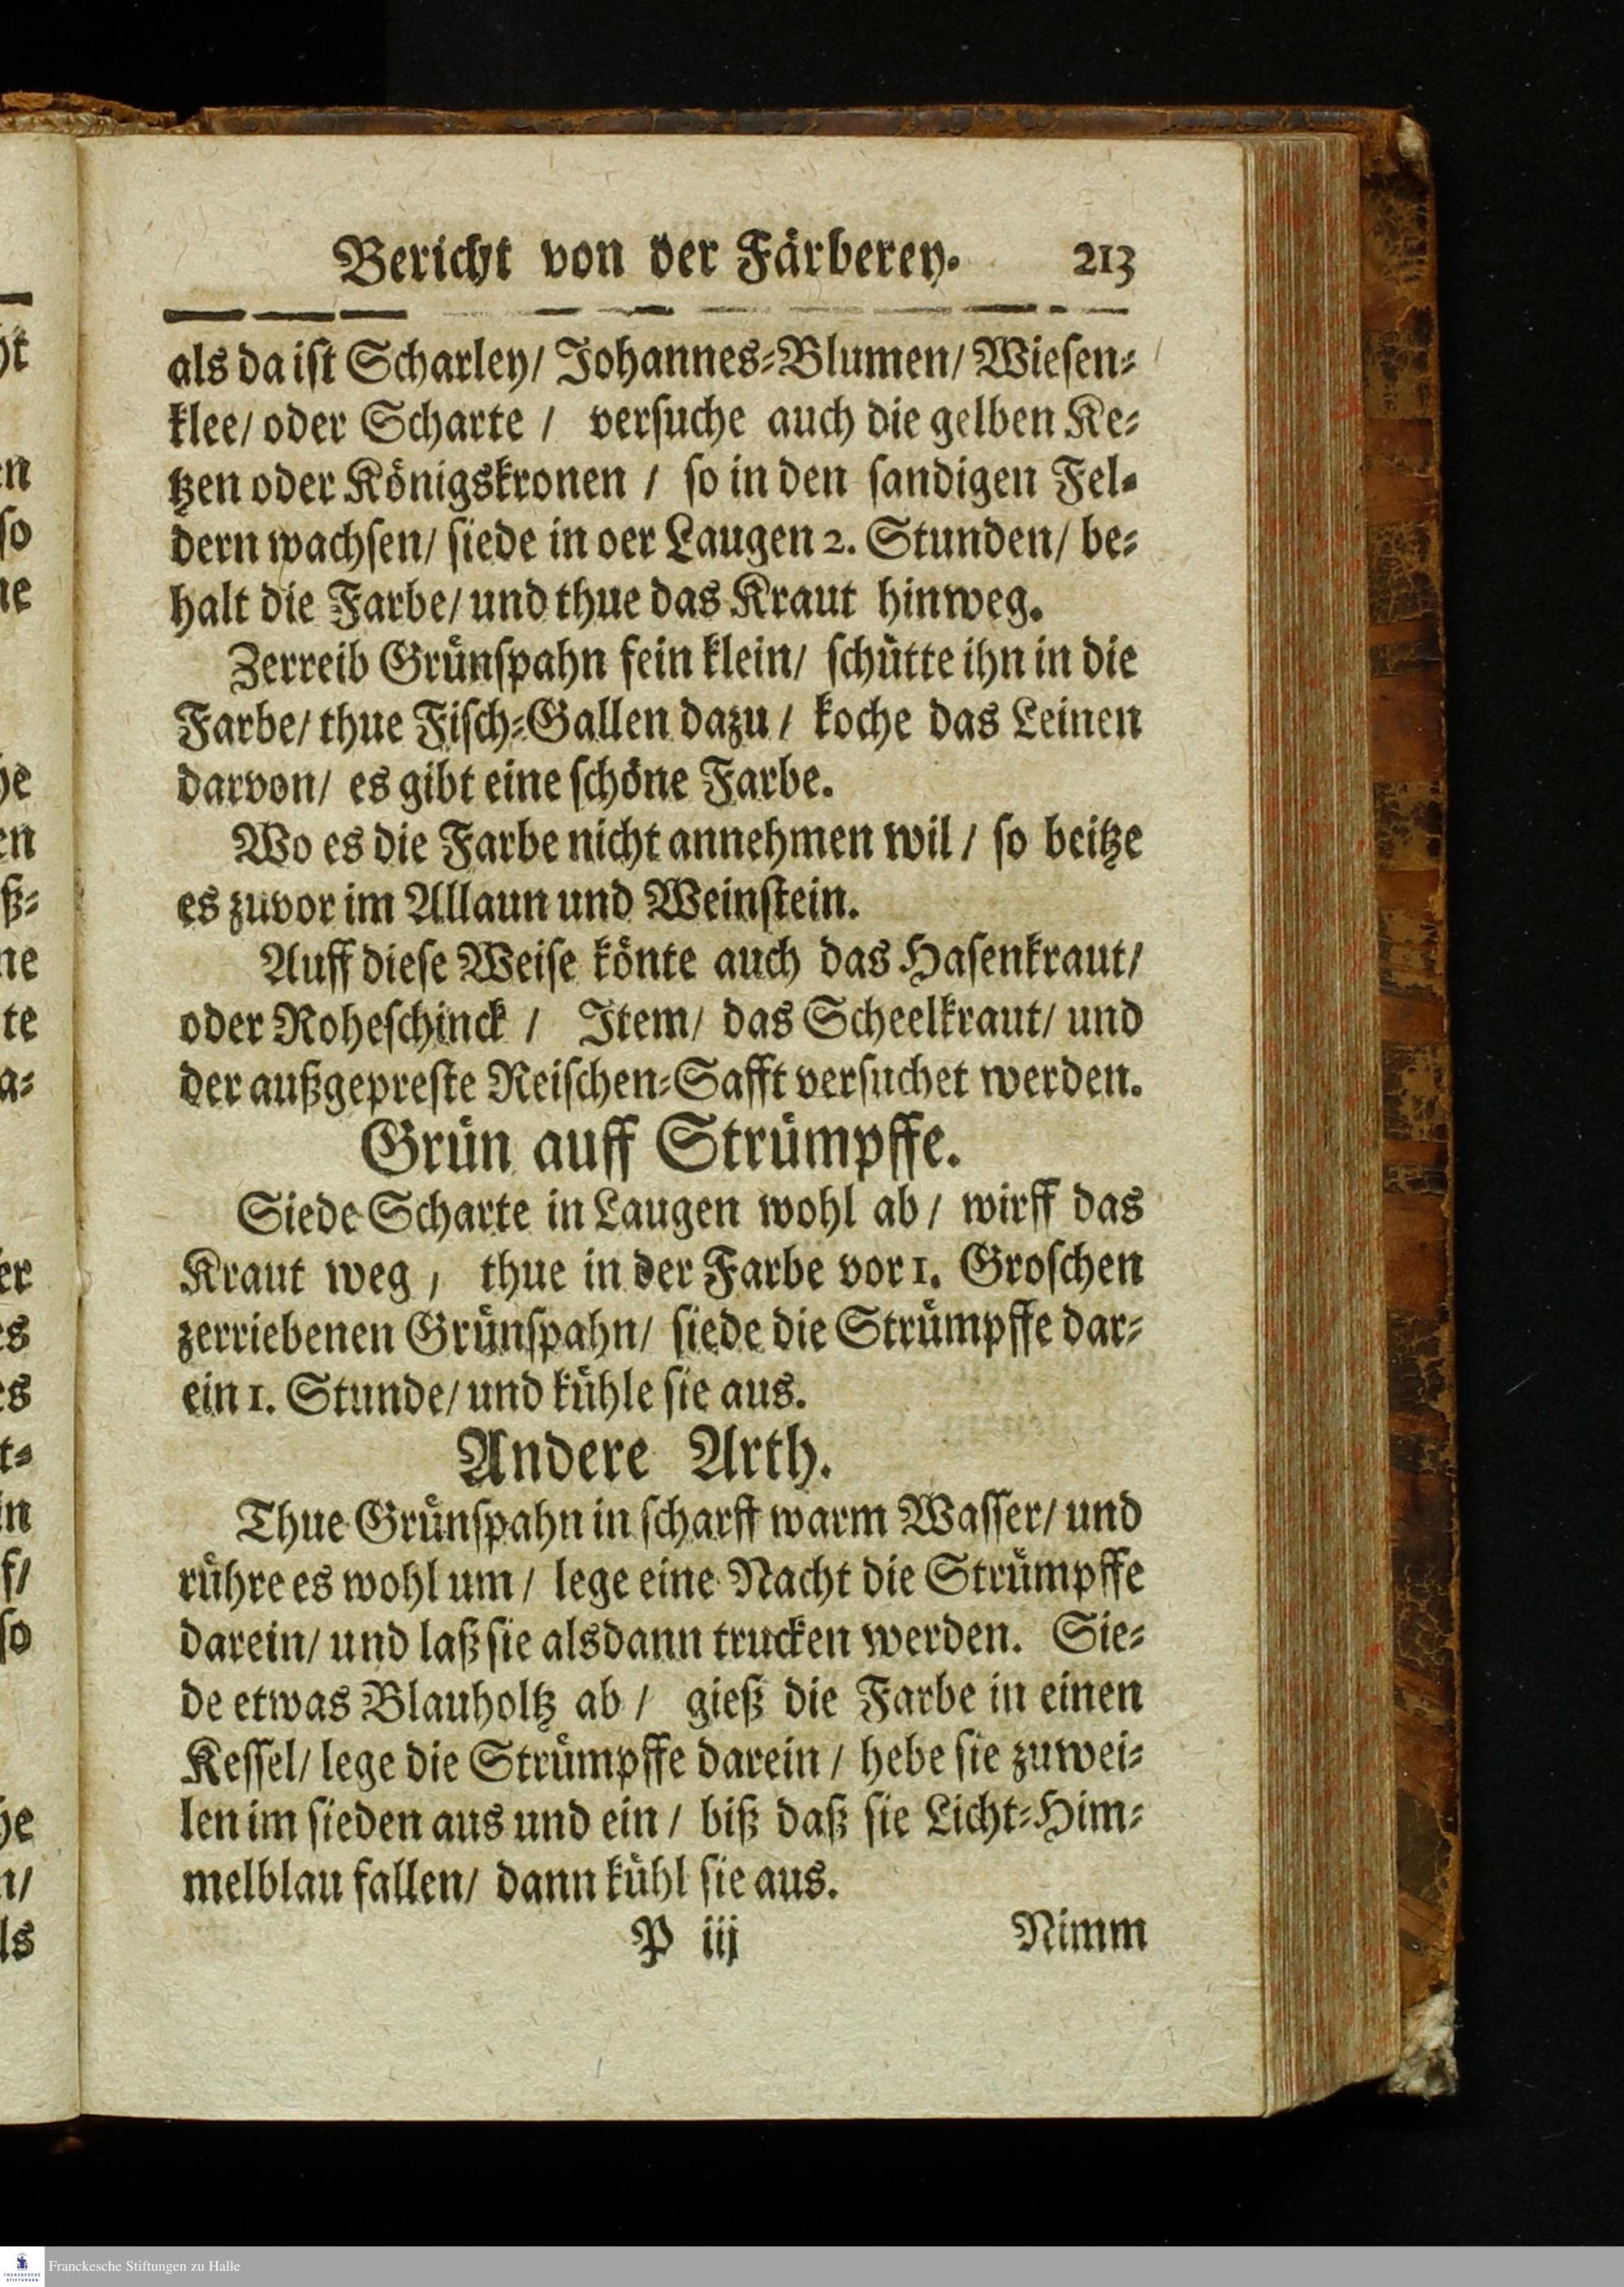 Bericht von der Färberey. 213
als da ist Scharley/ Johannes-Blumen/ Wiesen-
klee/ oder Scharte / versuche auch die gelben Ke-
tzen oder Königskronen / so in den sandigen Fel-
dern wachsen/ siede in oer Laugen 2. Stunden/ be-
halt die Farbe/ und thue das Kraut hinweg.
Zerreib Grünspahn fein klein/ schütte ihn in die
Farbe/ thue Fisch-Gallen dazu / koche das Leinen
darvon/ es gibt eine schöne Farbe.
Wo es die Farbe nicht annehmen wil / so beitze
es zuvor im Allaun und Weinstein.
Auff diese Weise könte auch das Hasenkraut/
oder Roheschinck / Item/ das Scheelkraut/ und
der außgepreste Reischen-Safft versuchet werden.
Grün auff Strümpffe.
Siede Scharte in Laugen wohl ab / wirff das
Kraut weg / thue in der Farbe vor 1. Groschen
zerriebenen Grünspahn/ siede die Strümpffe dar-
ein 1. Stunde/ und kühle sie aus.
Andere Arth.
Thue Grünspahn in scharff warm Wasser/ und
rühre es wohl um / lege eine Nacht die Strümpffe
darein/ und laß sie alsdann trucken werden. Sie-
de etwas Blauholtz ab / gieß die Farbe in einen
Kessel/ lege die Strümpffe darein / hebe sie zuwei-
len im sieden aus und ein / biß daß sie Licht-Him-
melblau fallen/ dann kühl sie aus.
P iij Nimm
Franckesche Stiftungen zu Halle